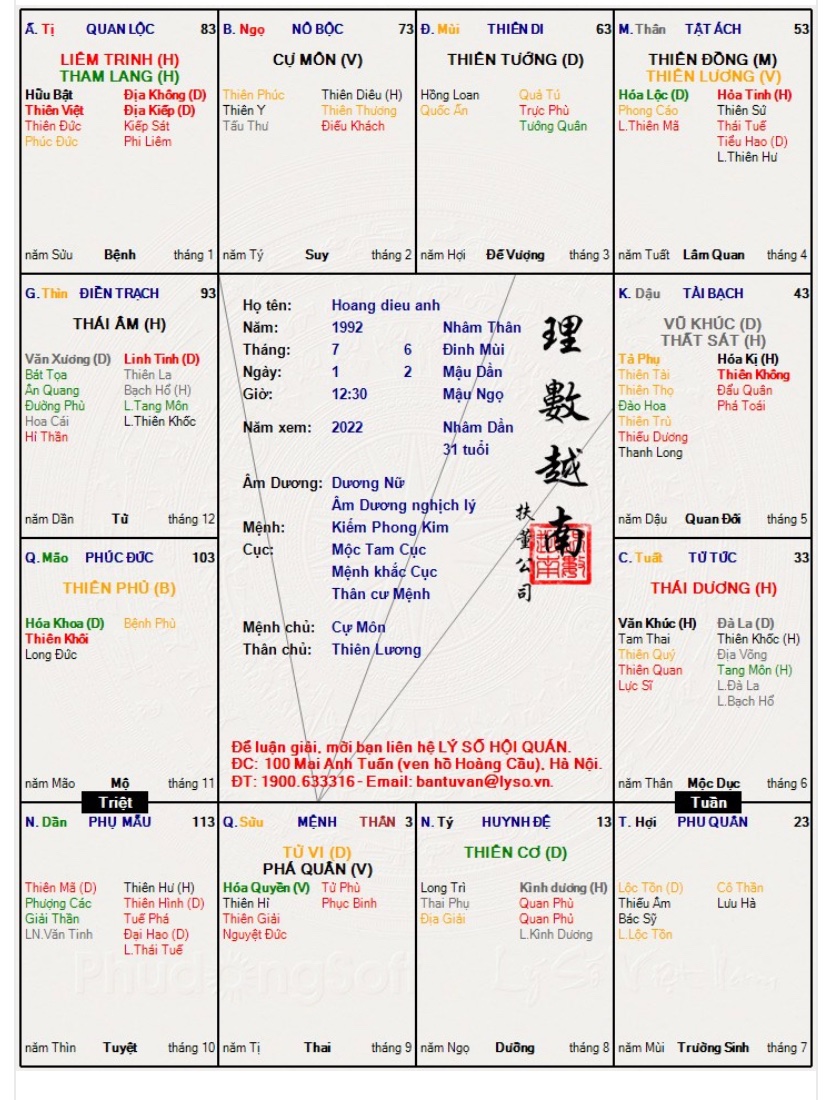 Ấ. Tị QUAN LỘC 83
LIÊM TRINH (H)
THAM LANG (H)
Hữu Bật Địa Không (D)
Thiên Việt Địa Kiếp (D)
Thiên Đức Kiếp Sát
Phúc Đức Phi Liêm
năm Sửu Bệnh tháng 1
B. Ngọ NÔ BỘC 73
CỰ MÔN (V)
Thiên Phúc Thiên Diêu (H)
Thiên Y Thiên Thương
Tấu Thư Điếu Khách
năm Tý Suy tháng 2
Đ. Mùi THIÊN DI 63
THIÊN TƯỚNG (D)
Hồng Loan Quả Tú
Quốc Ấn Trực Phù
Tướng Quân
năm Hợi Đế Vượng tháng 3
M. Thân TẬT ÁCH 53
THIÊN ĐỒNG (M)
THIÊN LƯƠNG (V)
Hóa Lộc (D) Hỏa Tinh (H)
Phong Cáo Thiên Sứ
L.Thiên Mã Thái Tuế
Tiểu Hao (D)
L.Thiên Hư
năm Tuất Lâm Quan tháng 4
G. Thìn ĐIỀN TRẠCH 93
THÁI ÂM (H)
Văn Xương (D) Linh Tinh (D)
Bát Tọa Thiên La
Ân Quang Bạch Hổ (H)
Đường Phù L.Tang Môn
Hoa Cái L.Thiên Khốc
Hỉ Thần
năm Dần Tử tháng 12
Họ tên: Hoang dieu anh
Năm: 1992 Nhâm Thân
Tháng: 7 6 Đinh Mùi
Ngày: 1 2 Mậu Dần
Giờ: 12:30 Mậu Ngọ
Năm xem: 2022 Nhâm Dần
31 tuổi
Âm Dương: Dương Nữ
Âm Dương nghịch lý
Mệnh: Kiếm Phong Kim
Cục: Mộc Tam Cục
Mệnh khắc Cục
Thân cư Mệnh
Mệnh chủ: Cự Môn
Thân chủ: Thiên Lương
理數越南
扶董公司
Để luận giải, mời bạn liên hệ LÝ SỐ HỘI QUÁN.
ĐC: 100 Mai Anh Tuấn (ven hồ Hoàng Cầu), Hà Nội.
ĐT: 1900.633316 - Email: bantuvan@lyso.vn.
K. Dậu TÀI BẠCH 43
VŨ KHÚC (D)
THẤT SÁT (H)
Tả Phụ Hóa Kị (H)
Thiên Tài Thiên Không
Thiên Thọ Đẩu Quân
Đào Hoa Phá Toái
Thiên Trù
Thiếu Dương
Thanh Long
năm Dậu Quan Đới tháng 5
Q. Mão PHÚC ĐỨC 103
THIÊN PHỦ (B)
Hóa Khoa (D) Bệnh Phù
Thiên Khôi
Long Đức
năm Mão Mộ tháng 11
C. Tuất TỬ TỨC 33
THÁI DƯƠNG (H)
Văn Khúc (H) Đà La (D)
Tam Thai Thiên Khốc (H)
Thiên Quý Địa Võng
Thiên Quan Tang Môn (H)
Lực Sĩ L.Đà La
L.Bạch Hổ
năm Thân Mộc Dục tháng 6
Triệt
Tuần
N. Dần PHỤ MẪU 113
Thiên Mã (D) Thiên Hư (H)
Phượng Các Thiên Hình (D)
Giải Thần Tuế Phá
LN.Văn Tinh Đại Hao (D)
L.Thái Tuế
năm Thìn Tuyệt tháng 10
Q. Sửu MỆNH THÂN 3
TỬ VI (D)
PHÁ QUÂN (V)
Hóa Quyền (V) Tử Phù
Thiên Hỉ Phục Binh
Thiên Giải
Nguyệt Đức
năm Tị Thai tháng 9
N. Tý HUYNH ĐỆ 13
THIÊN CƠ (D)
Long Trì Kình dương (H)
Thai Phụ Quan Phù
Địa Giải Quan Phủ
L.Kình Dương
năm Ngọ Dưỡng tháng 8
T. Hợi PHU QUÂN 23
Lộc Tồn (D) Cô Thần
Thiếu Âm Lưu Hà
Bác Sỹ
L.Lộc Tồn
năm Mùi Trường Sinh tháng 7
PhuđổngSoft Lý Số Việt Nam